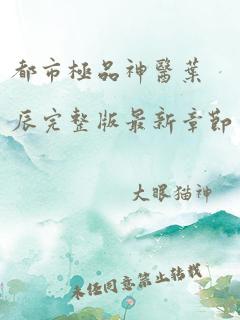 都市極品神醫葉
辰完整版最新章節
大眼猫神
未经同意禁止转载